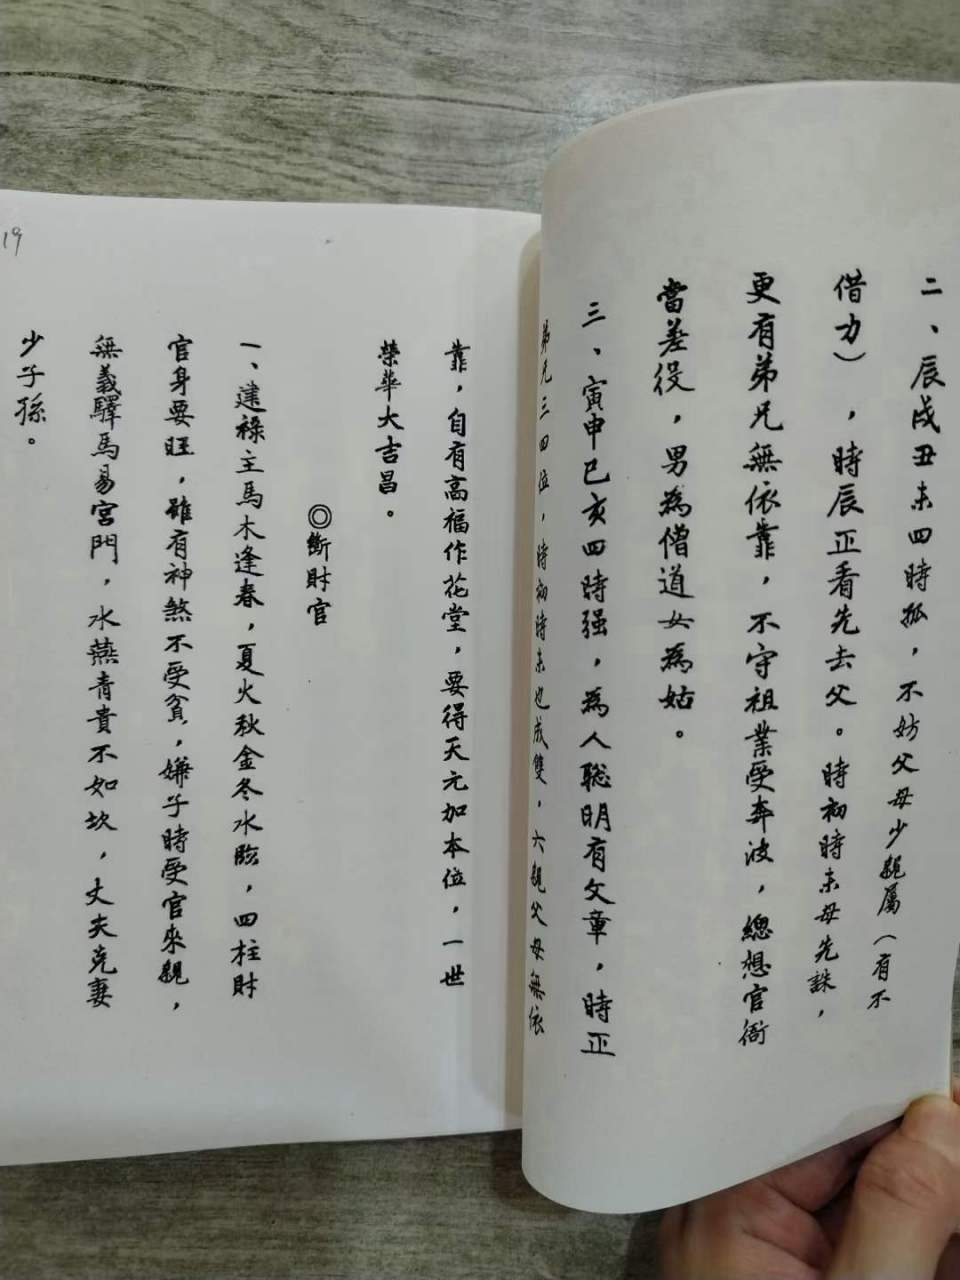 二、辰戌丑未四時孤，不妨父母少親屬（有不
借力），時辰正看先去父。時初時末母先誅，
更有弟兄無依靠，不守祖業受奔波，總想官衙
當差役，男為僧道女為姑。
三、寅申巳亥四時强，為人聪明有文章，時正
弟兄三四位，時初時末也成雙，六親父母無依
靠，自有高福作花堂，要得天元加本位，一世
榮華大吉昌。
◎斷財官
一、建祿主馬木逢春，夏火秋金冬水臨，四柱財
官身要旺，雖有神煞不受貧，嫌子時受官來親，
無義驛馬易宮門，水燕青貴不如坎，丈夫克妻
少子孫。
19